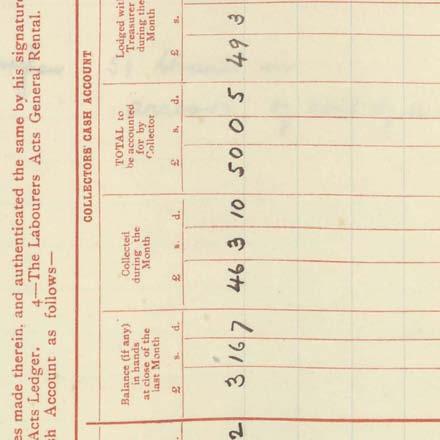 es made therein, and authenticated the same by his signature
Acts Ledger. 4—The Labourers Acts General Rental.
h Account as follows—
COLLECTORS' CASH ACCOUNT
Balance (if any)
in hands
at close of the
last Month
Collected
during the
Month
TOTAL to
be accounted
for by
Collector
Lodged with
Treasurer
during the
Month
d. £ s. d. £ s. d. £ s. d. £ s.
2 3 16 7 46 3 10 50 0 5 49 3